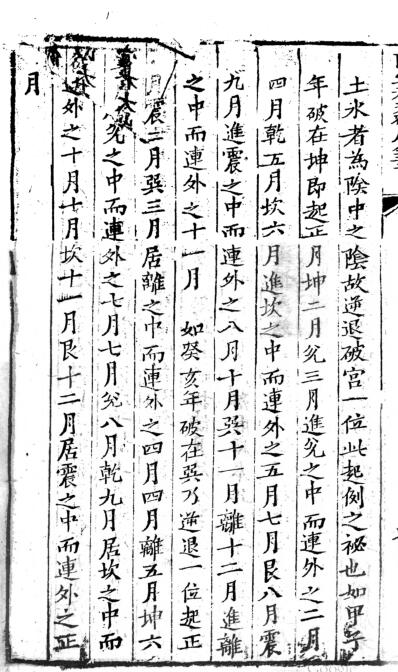 土水者為陰中之陰故逆退破宮一位此起例之祕也如甲子
年破在坤即起正月坤二月兊三月進兊之中而連外之二月
四月乾五月坎六月進坎之中而連外之五月七月艮八月震
九月進震之中而連外之八月十月巽十一月離十二月進離
之中而連外之十一月　如癸亥年破在巽乃逆退一位起正
月震二月巽三月居離之中而連外之四月四月離五月坤六
兊之中而連外之七月七月兊八月乾九月居坎之中而
連外之十月十月坎十一月艮十二月居震之中而連外之正
月
Google